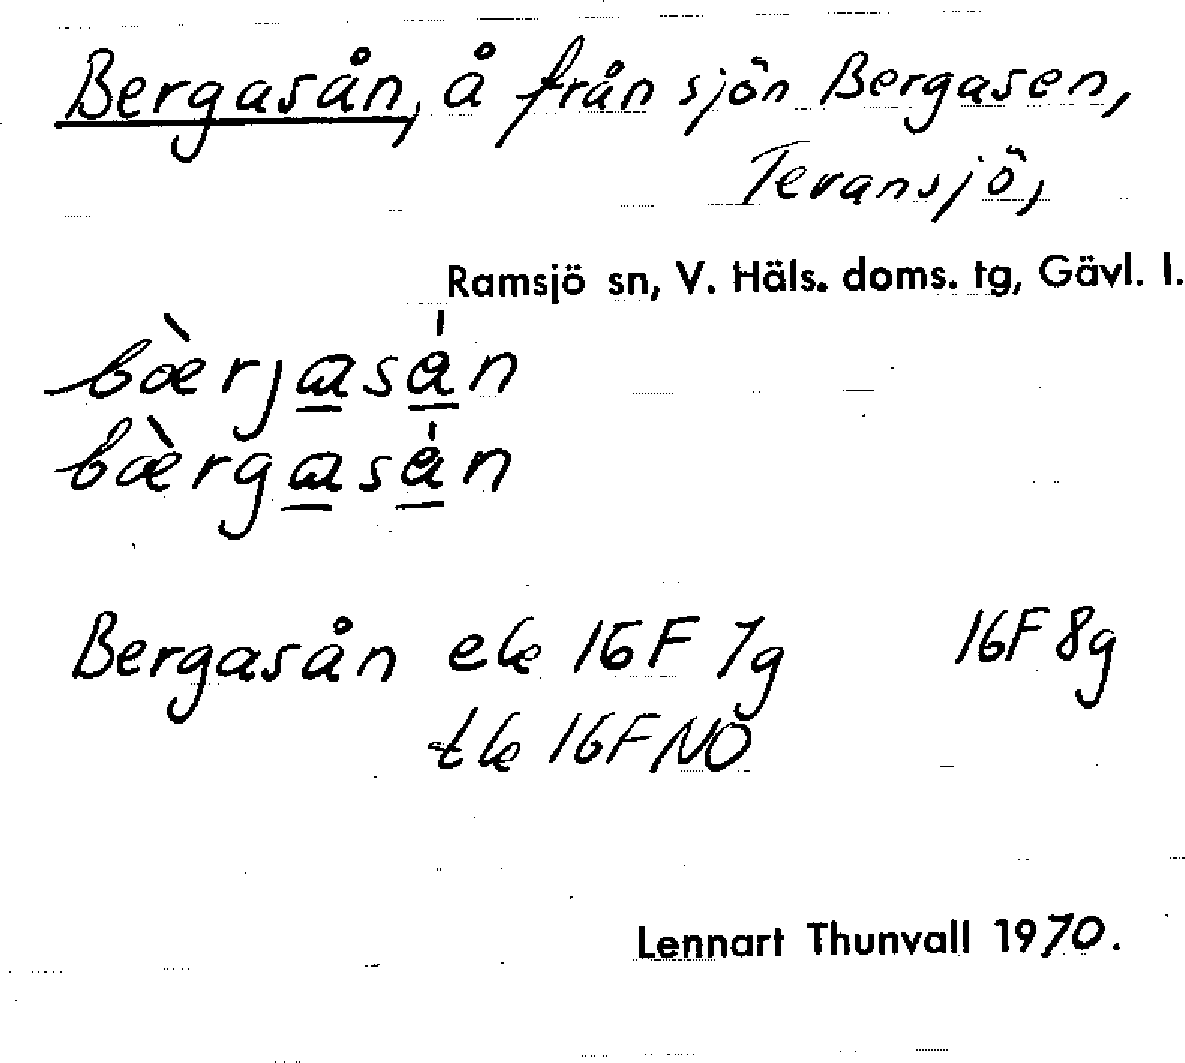 Bergasån, å från sjön Bergasen,
Tevansjö,
Ramsjö sn, V. Häls. doms. tg, Gävl. l.
bæ̀rjasán
bæ̀rgasán
Bergasån ek 16F 7g 16F 8g
tk 16F NO
Lennart Thunvall 1970.